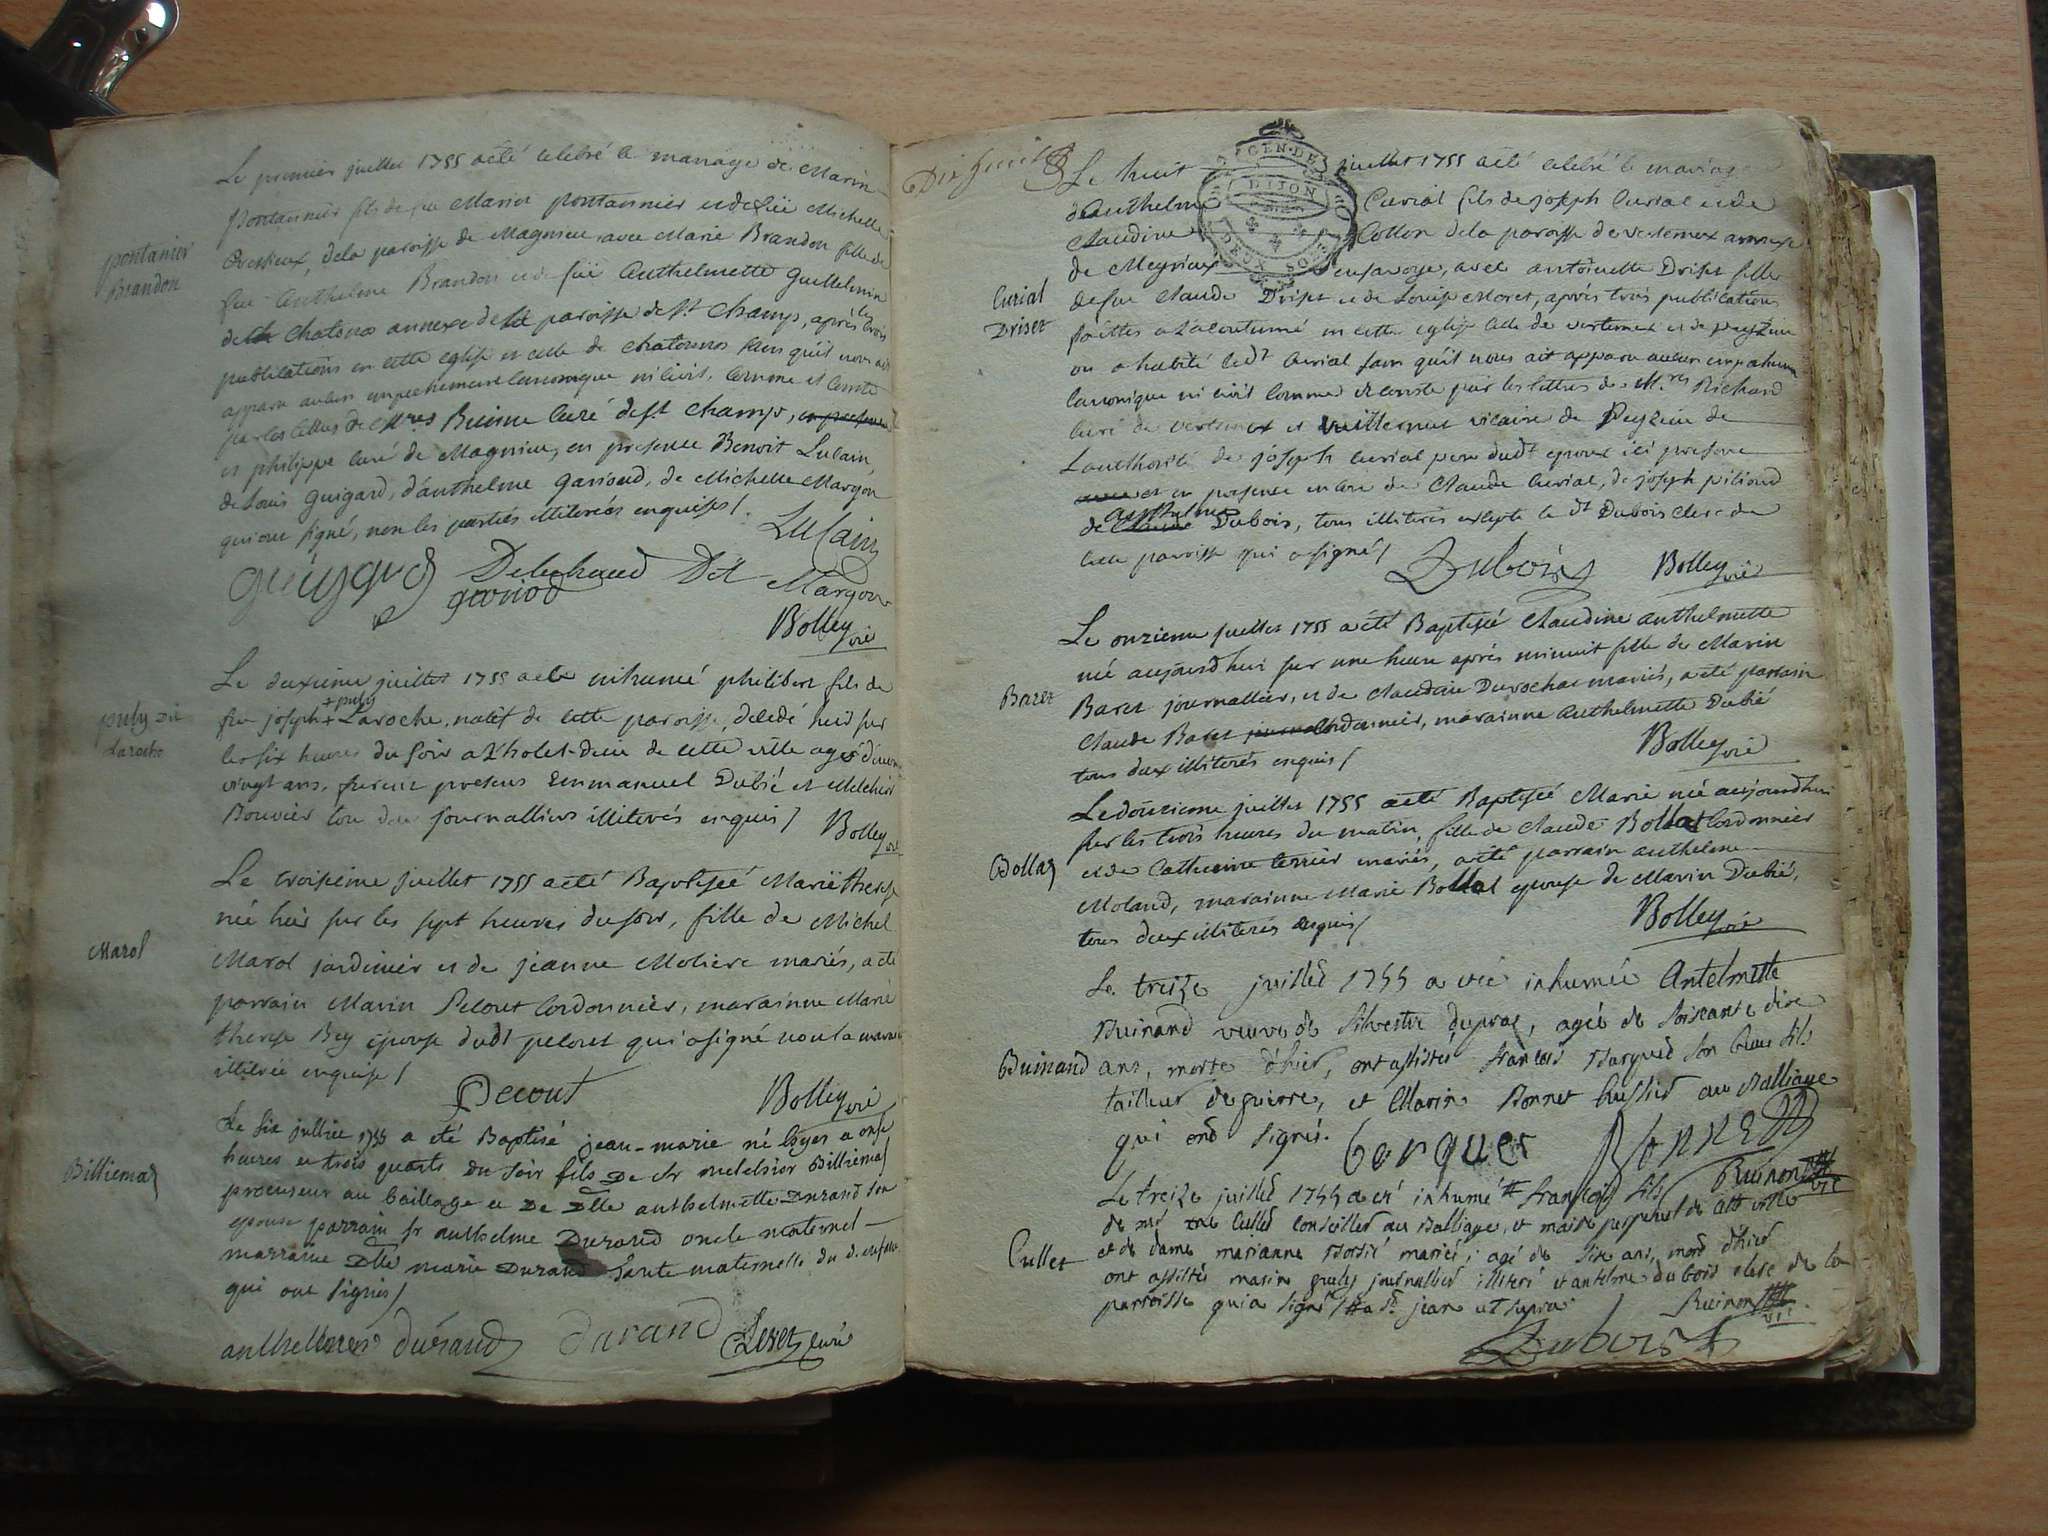 Le premier juillet 1755 a été celebré le mariage de Marin
pontannier fils de feu Marin pontannier et de füe Michelle
de la paroisse de Magnieu, avec Marie Brandon fille de
feu Anthelme Brandon et de füe Anthelmette Guillelmin
de chatonos annexe de la paroisse de St Champs, après les trois
publications en cette eglise et celle de chatonnos sans qu'il nous ait
apparu aucun empechement canonique ni civil, comme il conste
par les lettres de Mres Buinne curé de St Champs,
et philippe curé de Magnieu, en presence Benoit Lulain,
de Louis guigard, d'anthelme garioud, de Michelle Margon
qui ont signé, non les parties illiterées enquises /.
pontanier
Brandon
Lulain
guéygard Delachaud Dit Margon
gariod
Bolley vic
Le deuxieme juillet 1755 a été inhumé philibert fils de
feu joseph + puly Laroche, natif de cette paroisse, décédé hier sur
les six heures du soir a L'hotel-dieu de cette ville agé d'environ
vingt ans, furent presens Emmanuel Dubié et Melchior
Bouvier tou deux journalliers illiterés enquis /
puly dit
Laroche
Bolley vic
Le troisième juillet 1755 a été Baptisée Marie therese
née hier sur les sept heures du soir, fille de Michel
Marol jardinier et de jeanne Moliere mariés, a été
parrain Marin Pelout Cordonnier, marainne Marie
therese Bey épouse dudt peloret qui a signé non la maraine
illiterée enquise /
Marol
Pecout Bolley vic
Le six julliet 1755 a été Baptisé jean-marie né hyer a onse
heures et trois quarts du soir fils De sr melchior Billiemaz
procureur au bailage et De Dlle anthelmette Durand son
epouse parrain sr anthelme Durand oncle maternel
marraine Dlle marie Durand tante maternelle du d. enfant
qui ont signés /
Billiemaz
durand durand
curé
Dix huit
Le huit juillet 1755 a été celebré le mariage
d'Anthelme Curial fils de joseph Curial et de
Claudine Collon de la paroisse de vertemex annexe
de Meyrieux en savoye, avec antoinette Driset fille
de feu Claude Driset et de Louise Moret, après trois publications
faittes a L'acoutumé en cette eglise celle de vertemex et de peyzieu
ou a habité ledt Curial sans qu'il nous ait apparu aucun empechement
canonique ni civil comme il conste par les lettres de Mres Richard
curé de vertemex et vuillermet vicaire de Peyzieu de
L'authorité de joseph Curial pere dudt epoux ici present
et en presence encore de Claude Curial, de joseph pilioud
de Claude anthelme Dubois, tous illiterés excepté le dt Dubois clerc de
cette paroisse qui a signé /
Curial
Driset
GEN. DE
DIJON
Dubois Bolley vic
Le onzieme juillet 1755 a été Baptisée Claudine anthelmette
née aujourdhui sur une heure après minuit fille de Marin
Baret journallier, et de Claudine Durochat mariés, a été parrain
Claude Baret cordonnier, marainne Anthelmette Dubié
tous deux illiterés enquis /
Baret
Bolley vic
Le douzieme juillet 1755 a été Baptisée Marie née aujourdhui
sur les trois heures du matin, fille de Claude Bollaz Cordonnier
et de Catherine terrier mariés, a été parrain anthelme
Moland, marainne Marie Bollaz epouse de Marin Dubié,
tous deux illiterés enquis /
Bollaz
Bolley vic
Le treize juillet 1755 a été inhumée Antelmette
Buinand veuve de Silvestre dupraz, agée de soissante dixe
ans, morte d'hier, ont assistés françois Barquet son beau fils
tailleur de pierre, et Marin Bonnet huissier au Balliage
qui ont signés.
Buinand
berquet Bonnet
Buinon vic
Le treize juillet 1755 a été inhumé françois fils
de mre Cullet conseiller au Balliage, et maire perpetuel de cette ville
et de dame marianne mariés; agé de six ans, mort d'hier
ont assistés marin puly journallier illiteré et antelme dubois clerc de la
parroisse qui a signé jean ut supra
Cullet
Buinon vic
Dubois